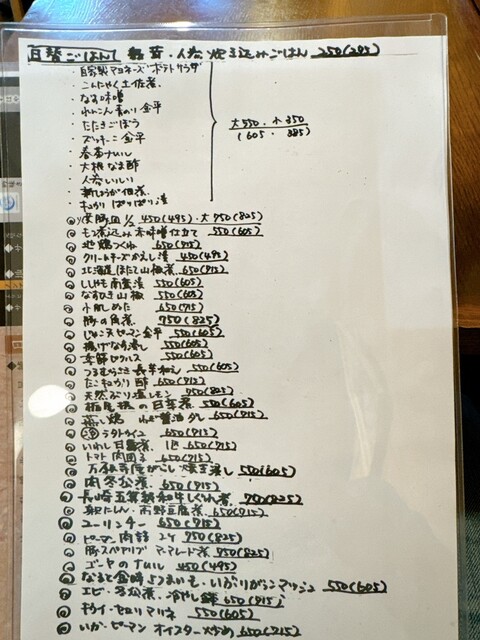 日替ごはん 人参 炊き込みごはん 250(275)
・自家製マヨネーズポテトサラダ
・こんにゃく土佐煮
・なす味噌
・れんこん青のり金平
・たたきごぼう
・ズッキーニ金平
・春菊ナムル
・大根なま酢
・人参しりしり
・新しょうが佃煮
・キュウリ ぱりぱり漬
大550・小350
(605・385)
◎ 1/2 450(495)・大750(825)
◎モツ煮込み 味噌仕立て 550(605)
◎地鶏つくね 650(715)
◎クリームチーズかえし漬 450(495)
◎北海道ほたて山椒煮 650(715)
◎ししゃも南蛮漬 550(605)
◎なすひき山椒 550(605)
◎小肌しめた 650(715)
◎豚の角煮 750(825)
◎じゃこピーマン金平 550(605)
◎揚げなす浸し 550(605)
◎季節ピクルス 550(605)
◎つるむらさき 550(605)
◎たこきゅうり酢 650(715)
◎天然ぶり塩レモン 750(825)
◎の旨煮 550(605)
◎蒸し鶏 ねぎ醤油 650(715)
◎ラタトゥイユ 650(715)
◎いわし甘露煮 1匹 650(715)
◎トマト肉団子 650(715)
◎万願寺唐がらし焼き浸し 550(605)
◎肉 煮 650(715)
◎長崎五島和牛しぐれ煮 750(825)
◎身にしん・高野豆腐煮 650(715)
◎ユーリンチー 650(715)
◎ピーマン肉詰 2ケ 750(825)
◎豚スペアリブ マーマレード煮 750(825)
◎ゴーヤのナムル 450(495)
◎なると金時さつまいも・いぶりがっこマッシュ 550(605)
◎エビ・冬瓜煮・冷やし鉢 650(715)
◎キウイ・セロリマリネ 550(605)
◎いか・ピーマン オイスター炒め 650(715)